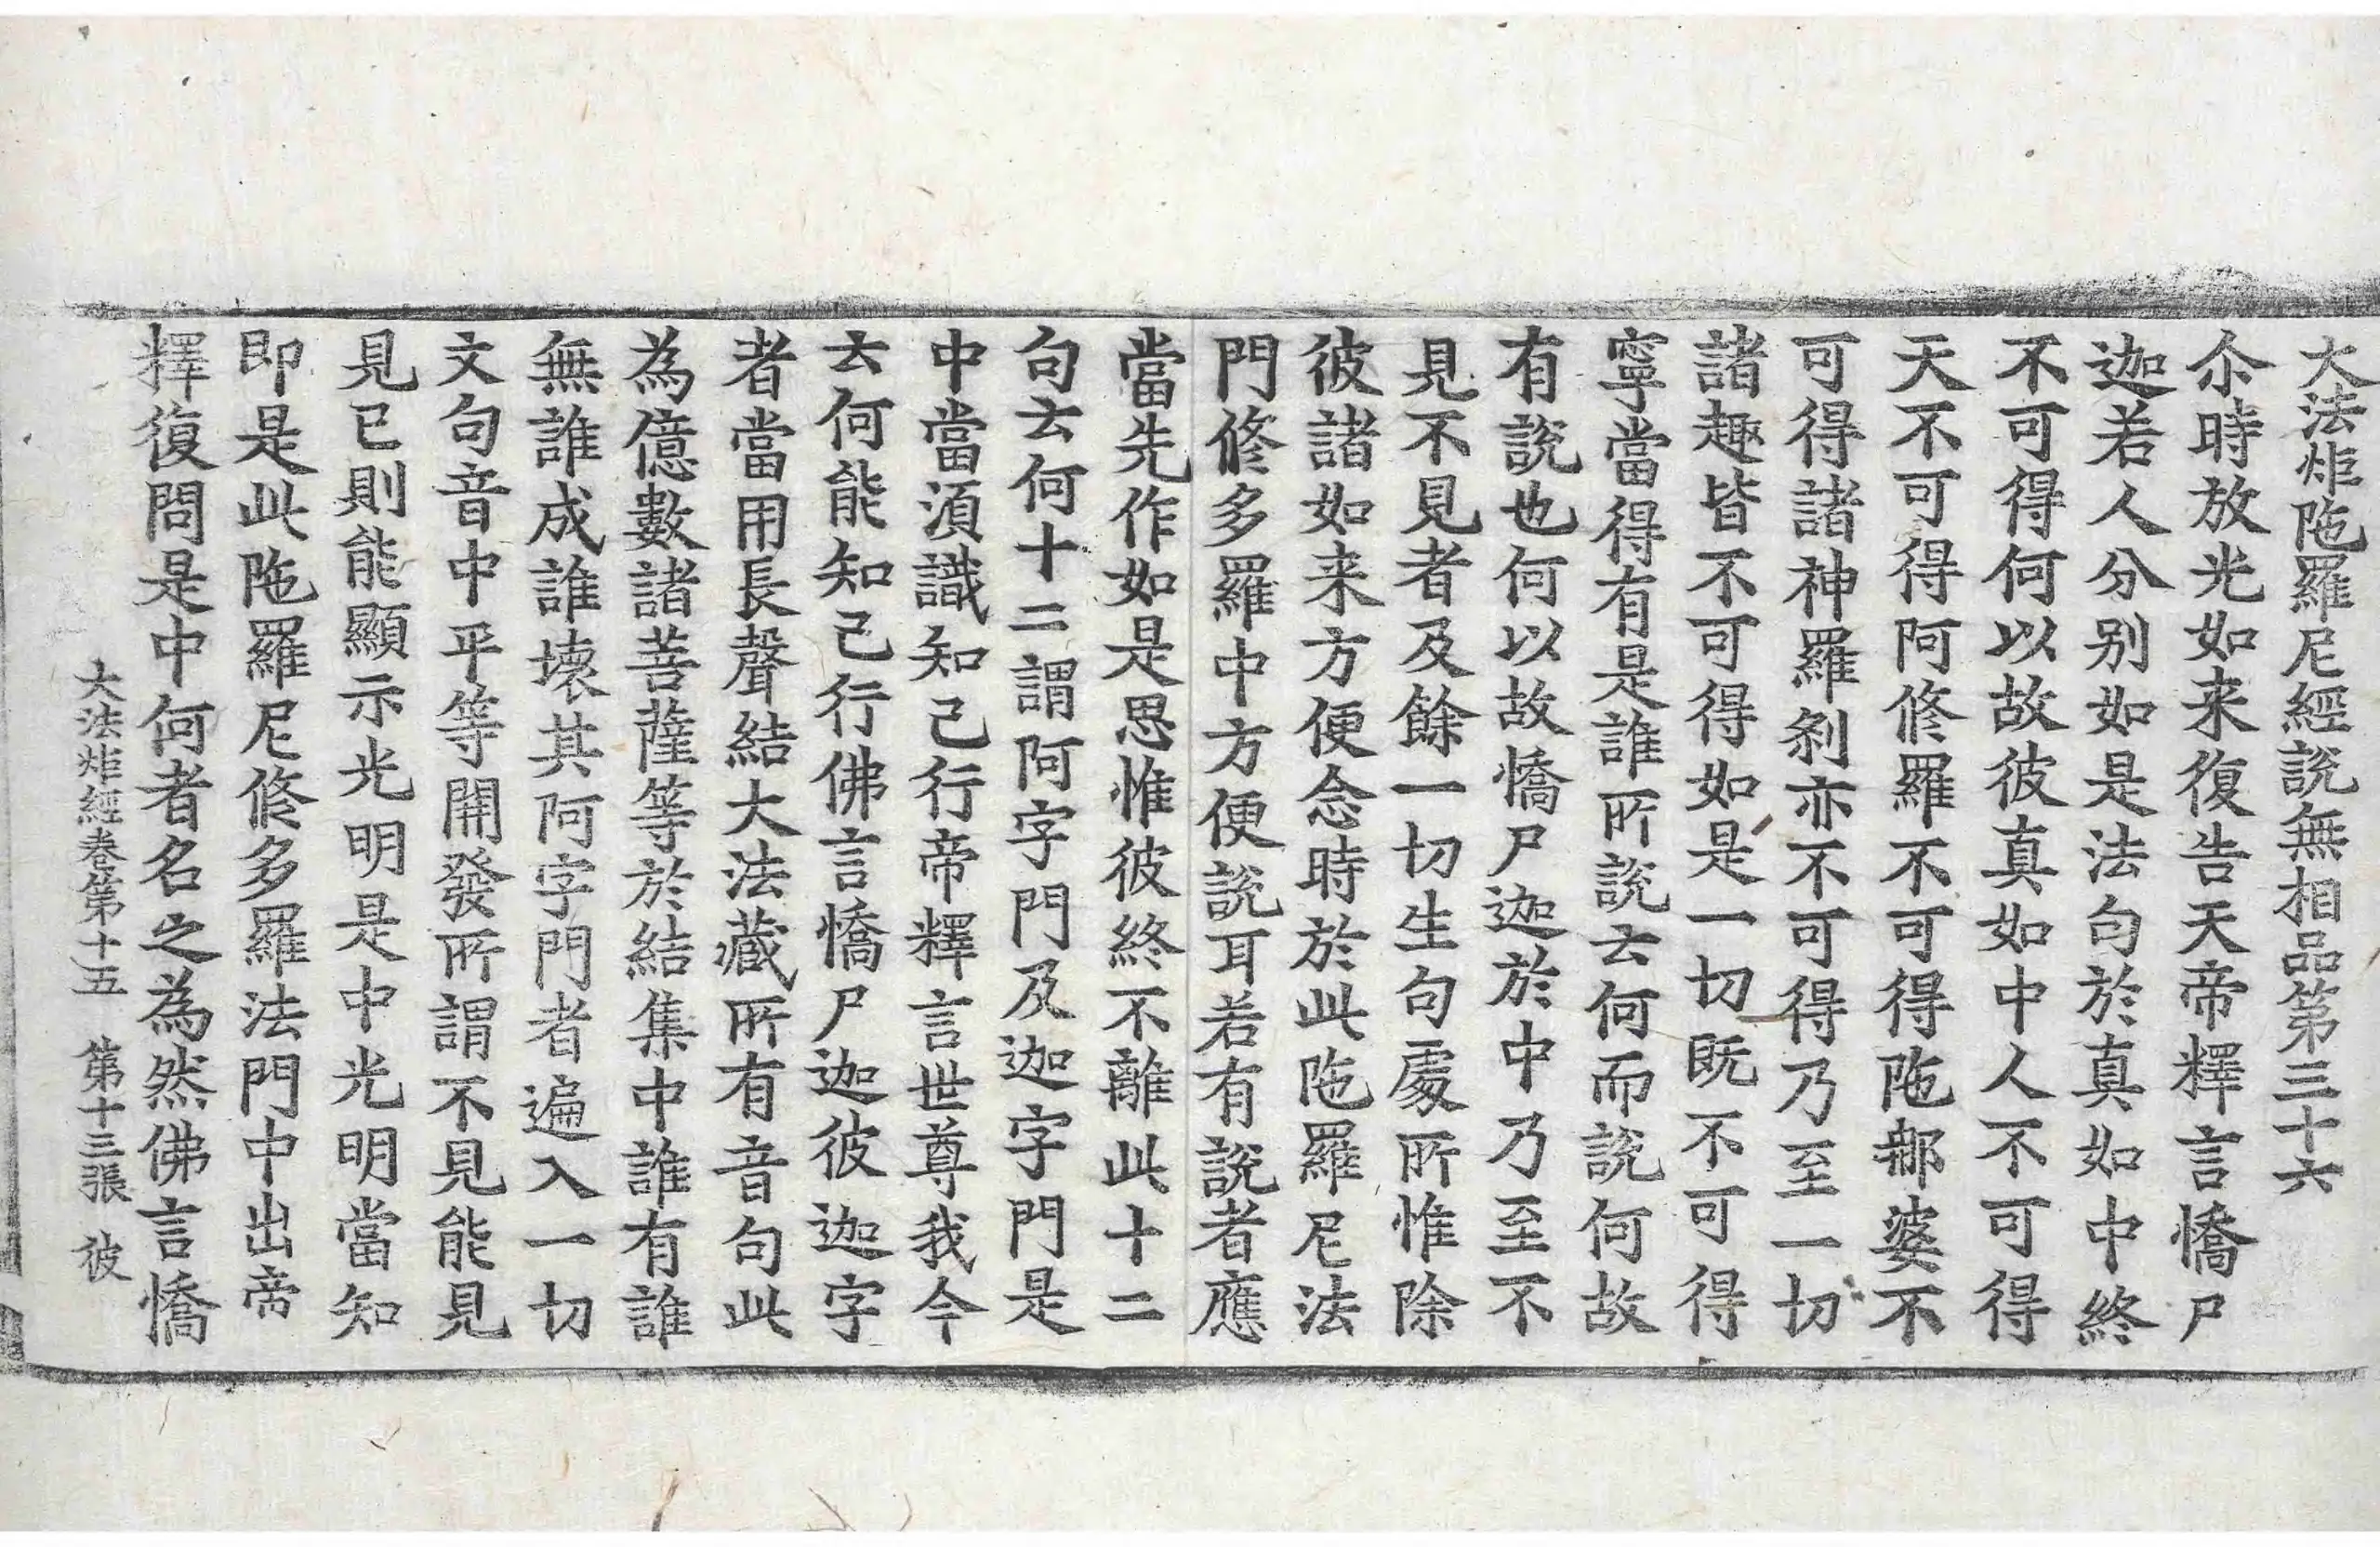 大法炬陁羅尼經說無相品第三十六
尒時放光如来復告天帝釋言憍尸
迦若人分别如是法句於真如中終
不可得何以故彼真如中人不可得
天不可得阿修羅不可得陁郍婆不
可得諸神羅剎亦不可得乃至一切
諸趣皆不可得如是一切既不可得
寧當得有是誰所說云何而說何故
有說也何以故憍尸迦於中乃至不
見不見者及餘一切生句處所惟除
彼諸如来方便念時於此陁羅尼法
門修多羅中方便說耳若有說者應
當先作如是思惟彼終不離此十二
句云何十二謂阿字門及迦字門是
中當湏識知己行帝釋言世尊我今
云何能知己行佛言憍尸迦彼迦字
者當用長聲結大法藏所有音句此
為億數諸菩薩等於結集中誰有誰
無誰成誰壞其阿字門者遍入一切
文句音中平等開發所謂不見能見
見已則能顯示光明是中光明當知
即是此陁羅尼修多羅法門中出帝
釋復問是中何者名之為然佛言憍
大法炬經卷第十五　第十三張　彼